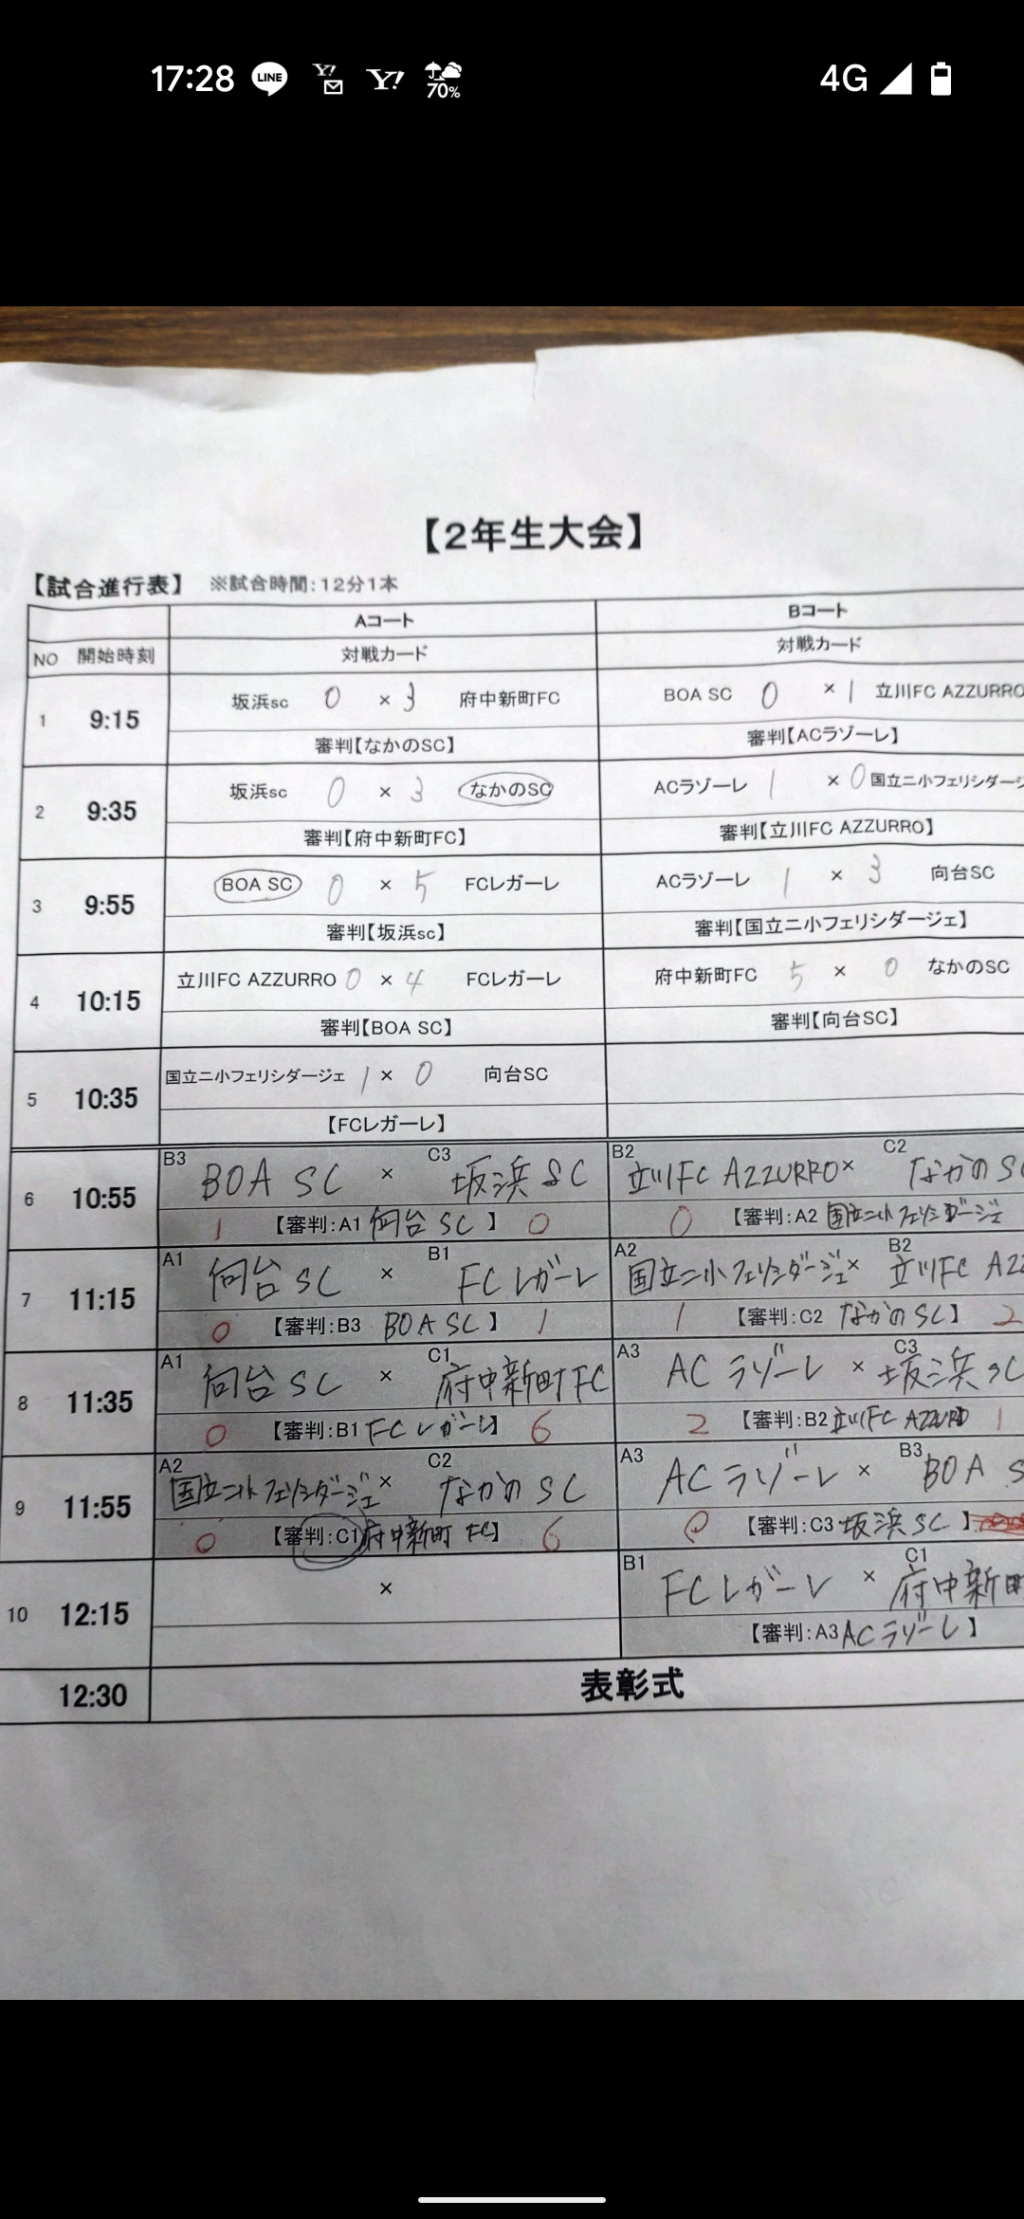 17:28 LINE Y! Y! 70% 4G
【2年生大会】
【試合進行表】 ※試合時間:12分1本
Aコート Bコート
NO 開始時刻 対戦カード 対戦カード
1 9:15 坂浜sc 0 × 3 府中新町FC BOA SC 0 × 1 立川FC AZZURRO
審判【なかのSC】 審判【ACラゾーレ】
2 9:35 坂浜sc 0 × 3 なかのSC ACラゾーレ 1 × 0 国立ニ小フェリシダージ
審判【府中新町FC】 審判【立川FC AZZURRO】
3 9:55 BOA SC 0 × 5 FCレガーレ ACラゾーレ 1 × 3 向台SC
審判【坂浜sc】 審判【国立ニ小フェリシダージェ】
4 10:15 立川FC AZZURRO 0 × 4 FCレガーレ 府中新町FC 5 × 0 なかのSC
審判【BOA SC】 審判【向台SC】
5 10:35 国立ニ小フェリシダージェ 1 × 0 向台SC
【FCレガーレ】
6 10:55 B3 BOA SC × C3 坂浜SC B2 立川FC AZZURRO × C2 なかのSC
1 【審判:A1 向台SC】 0 0 【審判:A2 国立二小フェリシダージェ
7 11:15 A1 向台SC × B1 FCレガーレ A2 国立二小フェリシダージェ × B2 立川FC AZZ
0 【審判:B3 BOA SC】 1 1 【審判:C2 なかのSC】 2
8 11:35 A1 向台SC × C1 府中新町FC A3 ACラゾーレ × C3 坂浜SC
0 【審判:B1 FCレガーレ】 6 2 【審判:B2 立川FC AZZURO】 1
9 11:55 A2 国立二小フェリシダージェ × C2 なかのSC A3 ACラゾーレ × B3 BOA S
0 【審判:C1 府中新町FC】 6 0 【審判:C3 坂浜SC】
10 12:15 × B1 FCレガーレ × C1 府中新町
【審判:A3 ACラゾーレ】
12:30 表彰式